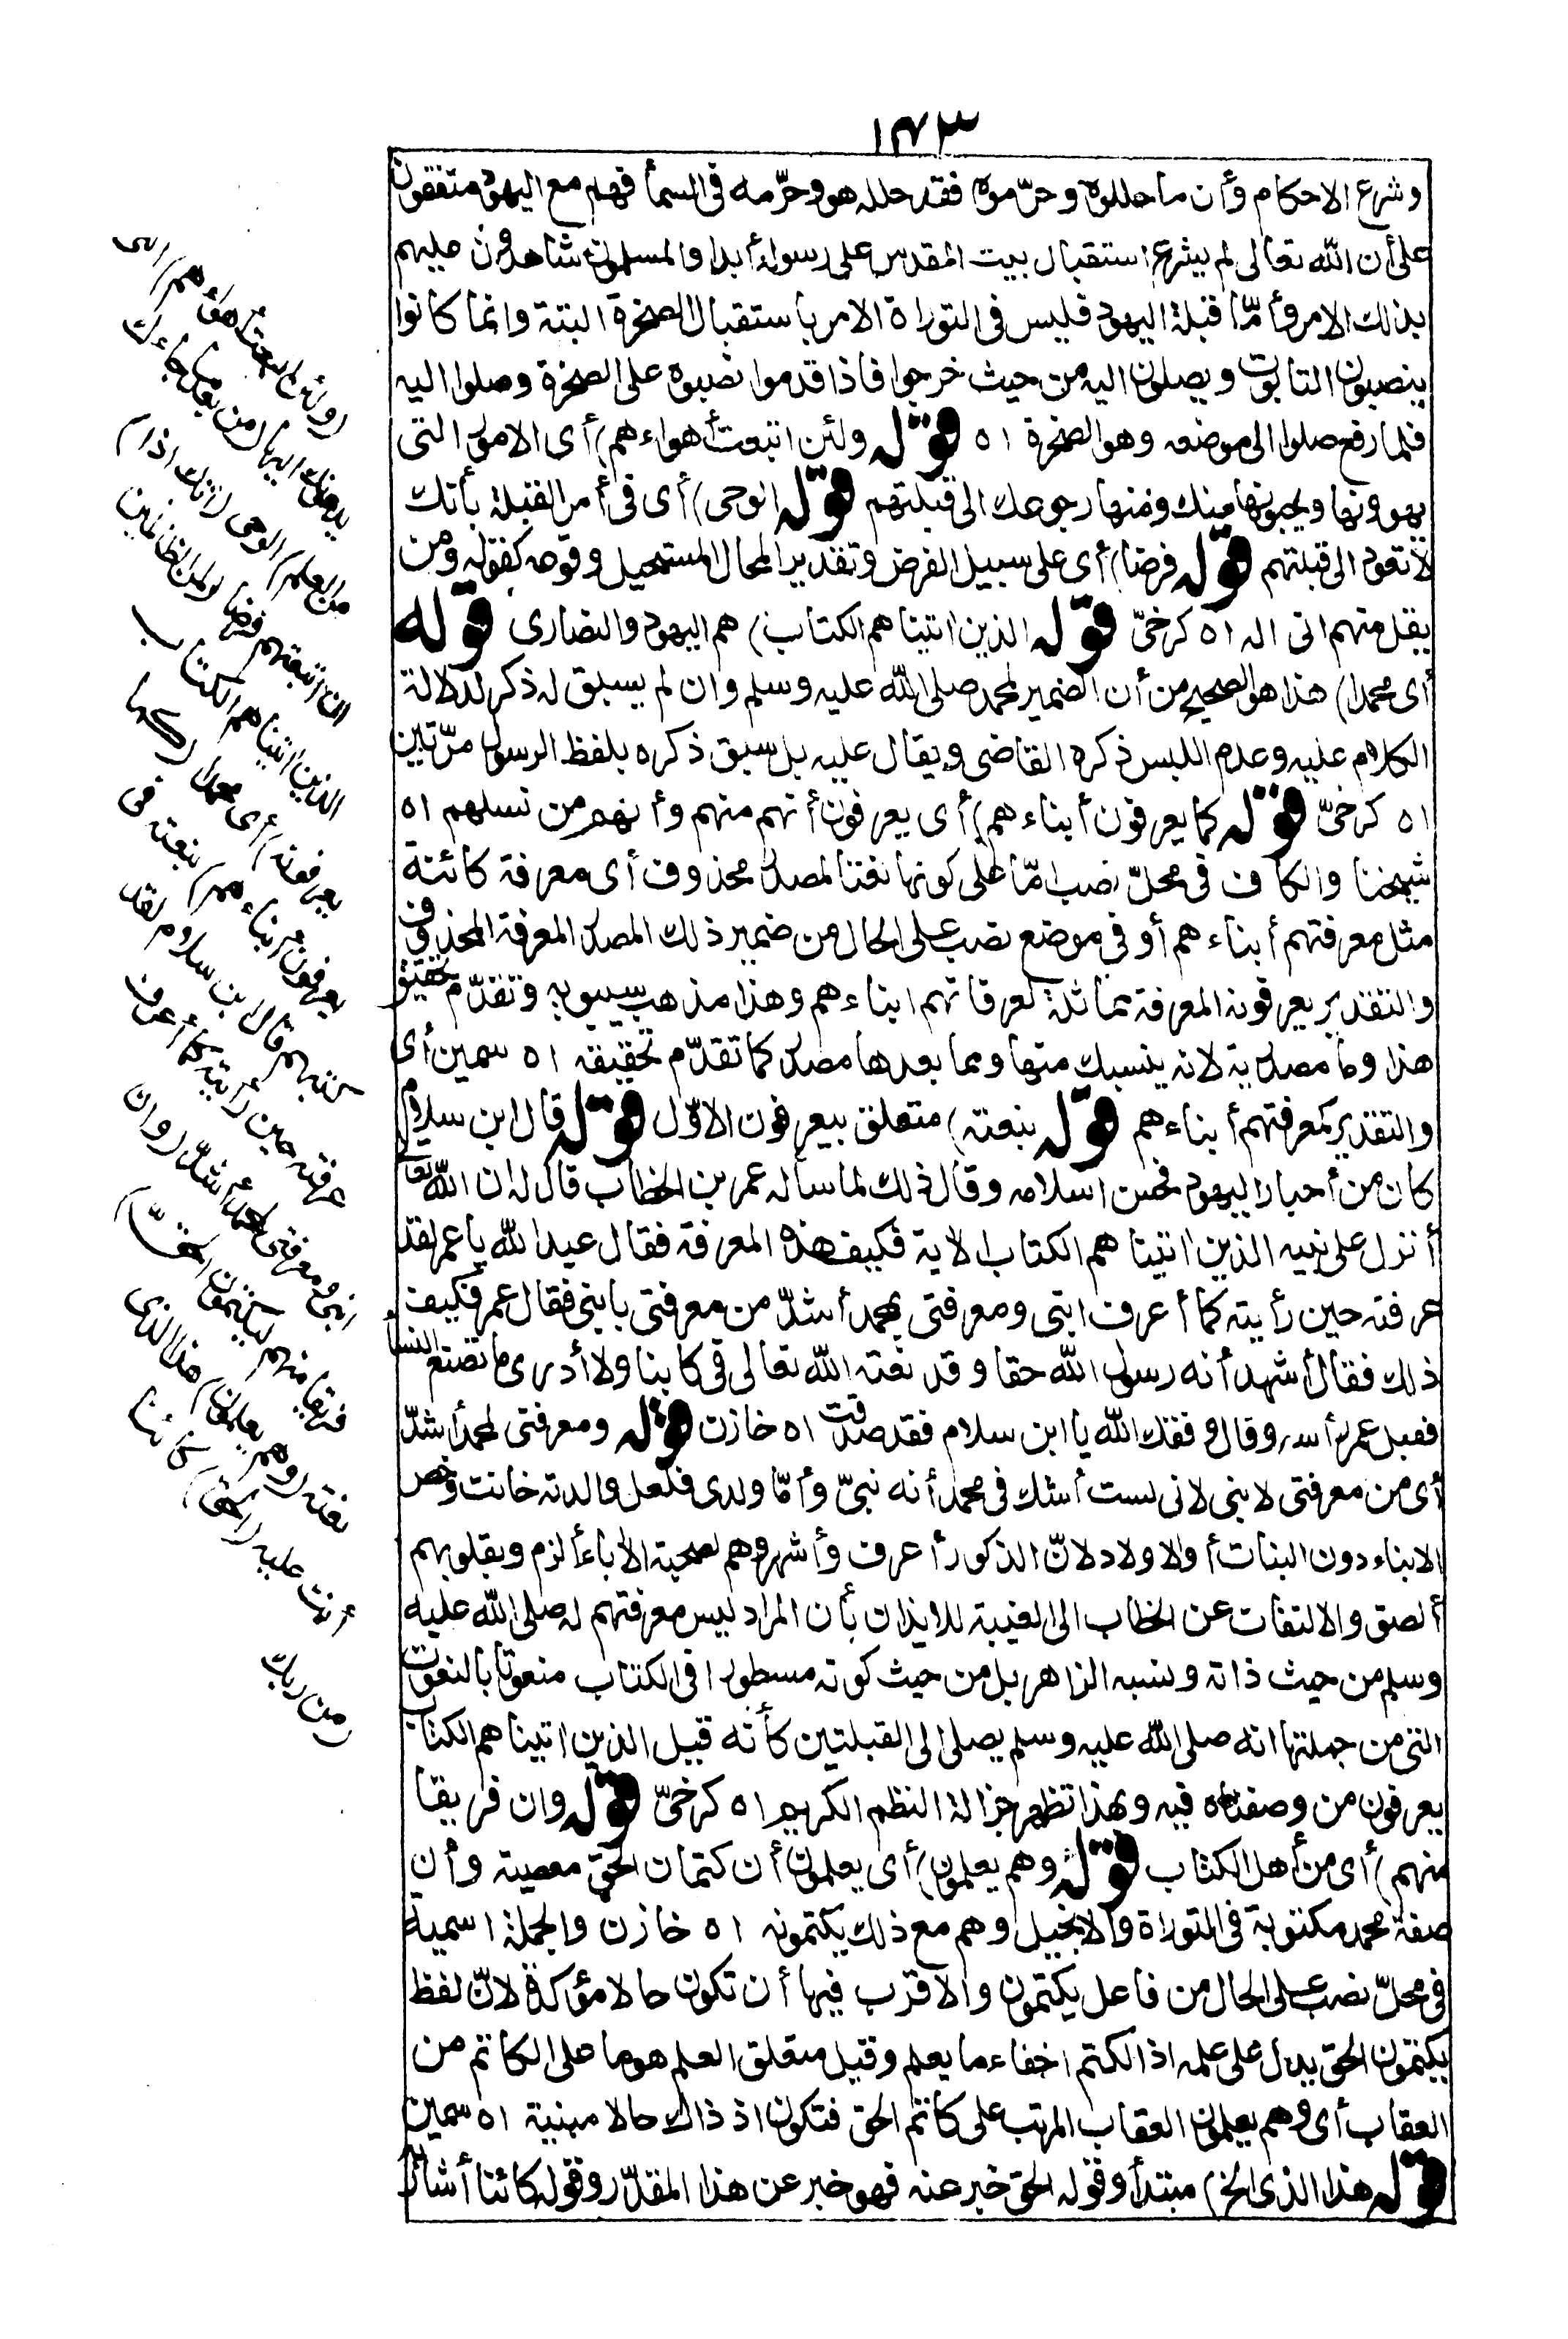 ١٧٣
وشرع الاحكام وأن ما حللوه وحرّموه فقد حلله هو وحرّمه فى السمأ فهم مع اليهود متفقون
على أن الله تعالى لم يشرع استقبال بيت المقدس على رسوله أبدا والمسلمون شاهدون عليهم
بذلك الامر وأمّا قبلة اليهود فليس فى التوراة الامر باستقبال الصخرة البتة وانما كانوا
ينصبون التابوت ويصلون اليه من حيث خرجوا فاذا قدموا نصبوه على الصخرة وصلوا اليه
فلما رفع صلوا الى موضعه وهو الصخرة اه قوله ولئن اتبعت أهواءهم) أى الامور التى
يهوونها ويحبونها منك ومنها رجوعك الى قبلتهم قوله الوحى) أى فى أمر القبلة بأنك
لا تعود الى قبلتهم قوله فرضا) أى على سبيل الفرض وتقدير المحال المستحيل وقوعه كقوله ومن
يقل منهم انى اله اه كرخىّ قوله الذين اتيناهم الكتاب) هم اليهود والنصارى قوله
أى محمدا) هذا هو الصحيح من أن الضمير لمحمد صلى الله عليه وسلم وان لم يسبق له ذكر لدلالة
الكلام عليه وعدم اللبس ذكره القاضى ويقال عليه بل سبق ذكره بلفظ الرسول مرّتين
اه كرخىّ قوله كما يعرفون أبناءهم) أى يعرفون أنهم منهم وأنهم من نسلهم اه
شيخنا والكاف فى محلّ نصب امّا على كونها نعتا لمصدر محذوف أى معرفة كائنة
مثل معرفتهم أبناءهم أو فى موضع نصب على الحال من ضمير ذلك المصدر المعرفة المحذوف
والتقدير يعرفونه المعرفة مماثلة لعرفانهم ابناءهم وهذا مذهب سيبويه وتقدّم تحقيق
هذا وما مصدرية لانه ينسبك منها ومما بعدها مصدر كما تقدّم تحقيقه اه سمين أى
والتقدير كمعرفتهم أبناءهم قوله بنعته) متعلق بيعرفون الاوّل قوله قال ابن سلام)
كان من أحبار اليهود فحسن اسلامه وقال ذلك لما سأله عمر بن الخطاب قال له ان الله تعا
أنزل على نبيه الذين اتيناهم الكتاب الاية فكيف هذه المعرفة فقال عبد الله يا عمر لقد
عرفته حين رأيته كما أعرف ابنى ومعرفتى بمحمد أشدّ من معرفتى بابنى فقال عمر فكيف
ذلك فقال أشهد أنه رسول الله حقا وقد نعته الله تعالى فى كتابنا ولا أدرى ما تصنع النسأ
فقبل عمر رأسه وقال وفقك الله يا ابن سلام فقد صدقت اه خازن قوله ومعرفتى لمحمد أشدّ
أى من معرفتى لابنى لانى لست أشك فى محمد أنه نبىّ وأمّا ولدى فلعل والدته خانت وخص
الابناء دون البنات أو الاولاد لانّ الذكور أعرف وأشهر وهم لصحبة الأباء ألزم وبقلوبهم
ألصق والالتفات عن الخطاب الى الغيبة للايذان بأن المراد ليس معرفتهم له صلى الله عليه
وسلم من حيث ذاته ونسبه الزاهر بل من حيث كونه مسطورا فى الكتاب منعوتا بالنعوت
التى من جملتها انه صلى الله عليه وسلم يصلى الى القبلتين كأنه قيل الذين اتيناهم الكتاب
يعرفون من وصفناه فيه وبهذا تظهر جزالة النظم الكريم اه كرخىّ قوله وان فريقا
منهم) أى من أهل الكتاب قوله وهم يعلمون) أى يعلمون أن كتمان الحق معصية وأن
صفة محمد مكتوبة فى التوراة والانجيل وهم مع ذلك يكتمونه اه خازن والجملة اسمية
فى محلّ نصب على الحال من فاعل يكتمون والاقرب فيها أن تكون حالا مؤكدة لانّ لفظ
يكتمون الحق يدل على علمه اذ الكتم اخفاء ما يعلم وقيل متعلق العلم هو ما على الكاتم من
العقاب أى وهم يعلمون العقاب المرتب على كاتم الحق فتكون اذ ذاك حالا مبنية اه سمين
قوله هذا الذى الخ) مبتدأ وقوله الحق خبر عنه فهو خبر عن هذا المقدّر وقوله كائنا أشار
(ولئن اتبعت أهواءهم) التى
يدعونك اليها (من بعد ما جاءك
من العلم) الوحى (انك اذا)
ان اتبعتهم فرضا (لمن الظالمين
الذين اتيناهم الكتاب
يعرفونه) أى محمدا (كما
يعرفون أبناءهم) بنعته فى
كتبهم قال ابن سلام لقد
عرفته حين رأيته كما أعرف
ابنى ومعرفتى لمحمد أشدّ (وان
فريقا منهم ليكتمون الحقّ)
نعته (وهم يعلمون) هذا الذى
أنت عليه (الحق) كائنا
(من ربك